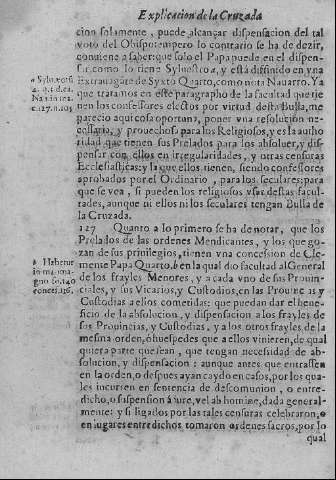 Explicacion de la Cruzada
cion solamente, puede alcançar dispensacion del tal
voto del Obispo: empero lo contrario se ha de dezir,
conuiene a saber: que solo el Papa puede en el dispen-
sar como lo tiene Syluestro a, y està diffinido en vna
Extrauagãte de Syxto Quarto, como nota Nauarro. Ya
que tratamos en este paragrapho de la facultad que tie
nen los confessores electos por virtud desta Bulla, me
parecio aqui cosa oportuna, poner vna resolucion ne-
cessaria, y prouechosa para los Religiosos, y es la autho
ridad que tienen sus Prelados para los absoluer, y dis-
pensar con ellos en irregularidades, y otras censuras
Ecclesiasticas: y la que ellos tienen, siendo confessores
aprobados por el Ordinario, para los seculares: para
que se vea, si pueden los religiosos vsar destas facul-
tades, aunque ni ellos ni los seculares tengan Bulla de
la Cruzada.
127 Quanto a lo primero se ha de notar, que los
Prelados de las ordenes Mendicantes, y los que go-
zan de sus priuilegios, tienen vna concession de Cle-
mente Papa Quarto, b en la qual dio facultad al General
de los frayles Menores, y a cada vno de sus Prouin-
ciales, y sus Vicarios, y Custodios, en las Prouincias y
Custodias a ellos cometidas: que puedan dar el bene-
ficio de la absolucion, y dispensacion a los frayles de
sus Prouincias, y Custodias, y a los otros frayles de la
mesma orden, ò huespedes que a ellos vinieren, de qual
quiera parte que sean, que tengan necessidad de ab-
solucion, y dispensacion: aunque antes que entrassen
en la orden, o despues ayan caydo en casos, por los qua-
les incurren en sentencia de descomunion, o entre-
dicho, o suspension à iure, vel ab homine, dada general-
mente: y si ligados por las tales censuras celebraron, o
en lugares entredichos tomaron ordenes sacros, por lo
qual
a Sylu. votũ
4. q.
b Habetur